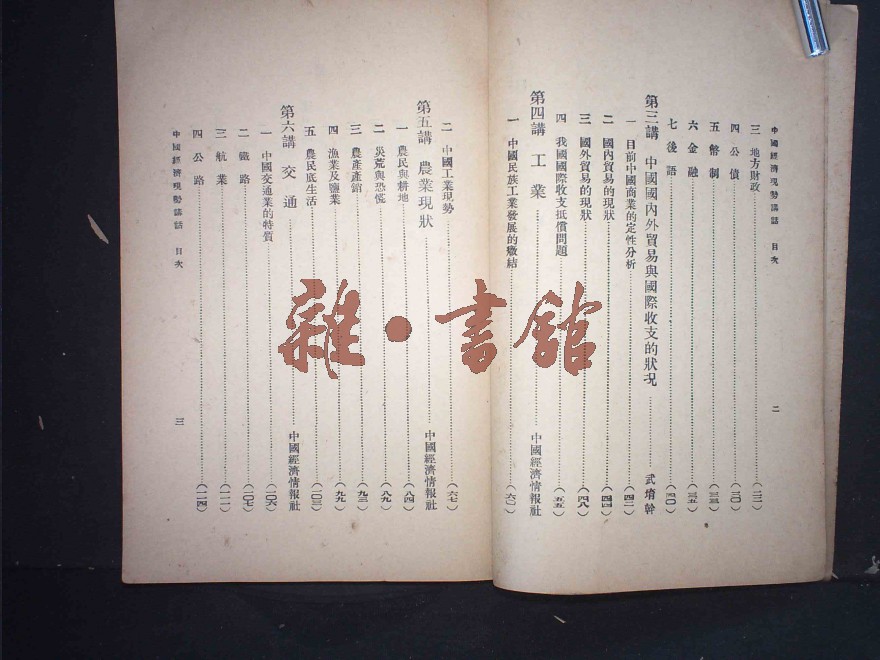 中國經濟現勢講話 目次
二
三 地方財政……(二二)
四 公債……(三〇)
五 幣制……(三三)
六 金融……(三五)
七 後語……(四〇)
第三講 中國國內外貿易與國際收支的狀況……武堉幹
一 目前中國商業的定性分析……(四二)
二 國內貿易的現狀……(四四)
三 國外貿易的現狀……(四八)
四 我國國際收支抵償問題……(五五)
第四講 工業……中國經濟情報社
一 中國民族工業發展的癥結……(六〇)
二 中國工業現勢……(六七)
第五講 農業現狀……中國經濟情報社
一 農民與耕地……(八四)
二 災荒與恐慌……(八九)
三 農產產銷……(九三)
四 漁業及鹽業……(九九)
五 農民底生活……(一〇三)
第六講 交通……中國經濟情報社
一 中國交通業的特質……(一〇六)
二 鐵路……(一〇七)
三 航業……(一一一)
四 公路……(一一四)
中國經濟現勢講話 目次
三
雜·書館